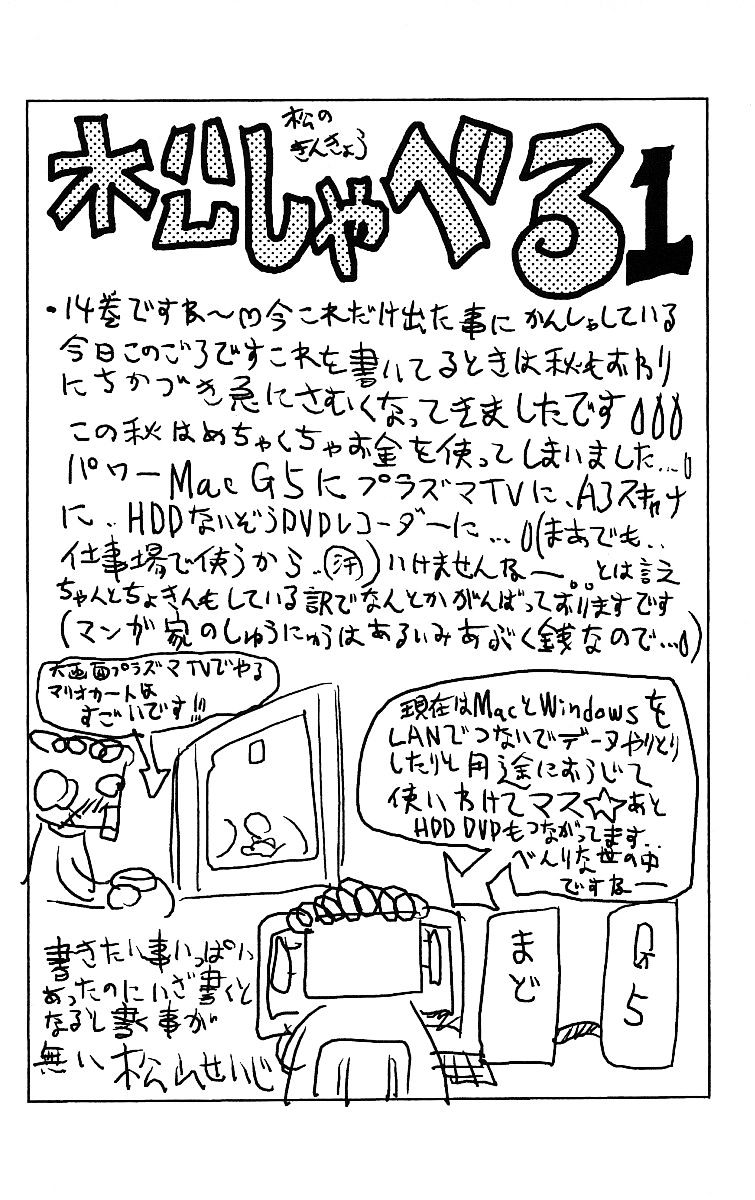 松の
きんきょう
松しゃべる1
・14巻ですね〜m今これだけ出た事にかんしゃしている
今日このごろですこれを書いてるときは秋もおわり
にちかづき急にさむくなってきましたです
この秋はめちゃくちゃお金を使ってしまいました…
パワーMacG5にプラズマTVに、A3スキャナ
に、HDDないぞうDVDレコーダーに…(まあでも..
仕事場で使うから..(汗))いけませんなー..とは言え
ちゃんとちょきんもしている訳でなんとかがんばっておりますです
(マンガ家のしゅうにゅうはあるいみあぶく銭なので…)
大画面プラズマTVでやる
マリオカートは
すごいです!!!
現在はMacとWindowsを
LANでつないでデータやりとり
したりと用途におうじて
使いわけてマス☆あと
HDD DVDもつながってます..
べんりな世の中
ですなー
まど
G5
書きたい事いっぱい
あったのにいざ書くと
なると書く事が
無い 松山せいじ